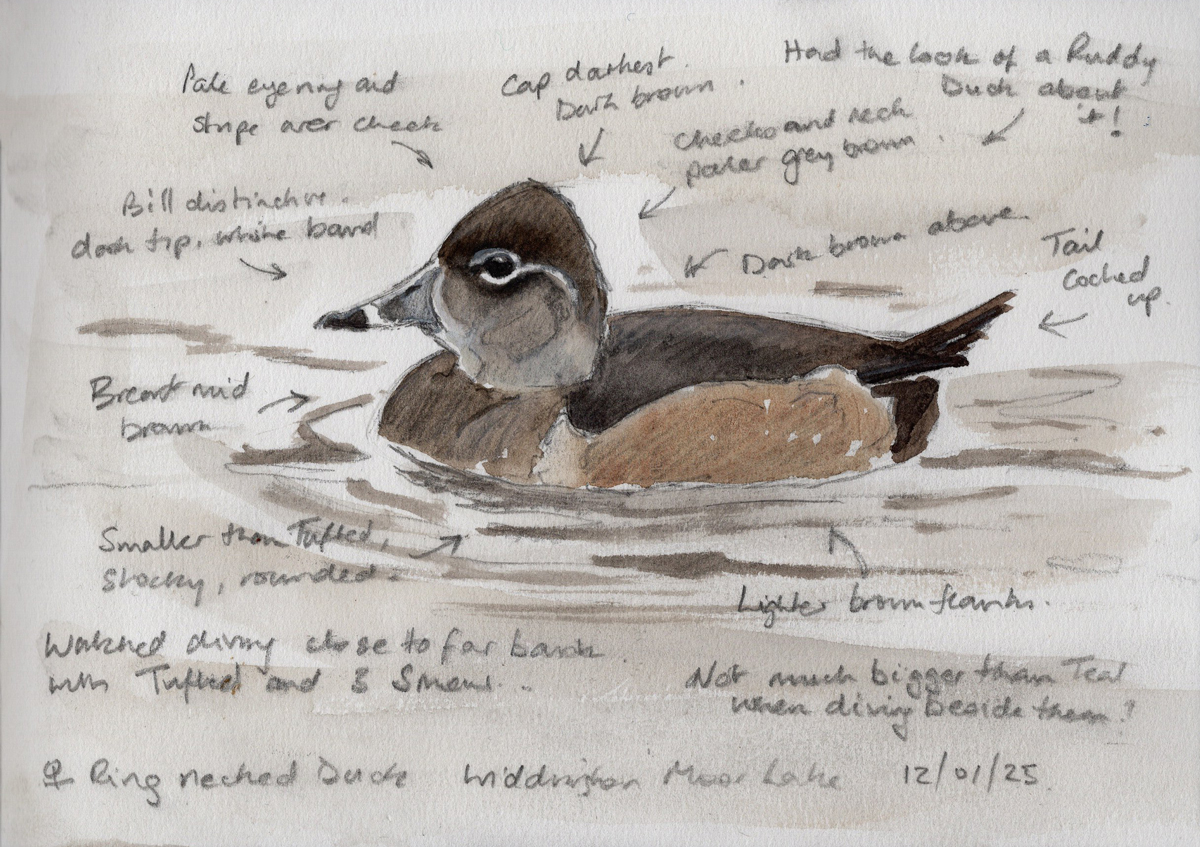 Pale eyering and
stripe over cheek
Cap darkest.
Dark brown.
Had the look of a Ruddy
Duck about
it!
Cheeks and neck
paler grey brown.
Bill distinctive.
dark tip, white band
Dark brown above.
Tail
cocked
up.
Breast mid
brown
Smaller than Tufted,
stocky, rounded.
Lighter brown flanks.
Watched diving close to far bank
with Tufted and 3 Smew..
Not much bigger than Teal
when diving beside them!
♀ Ring necked Duck Widdrington Moor Lake 12/01/25.